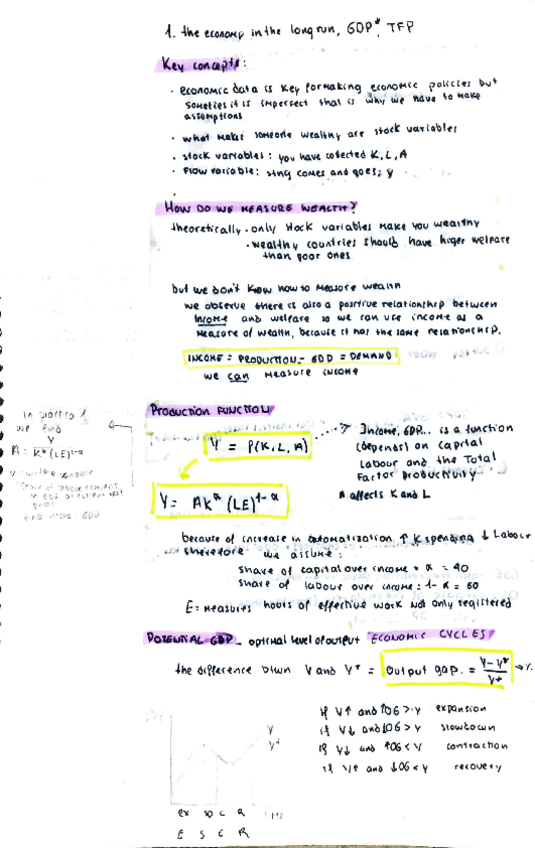 1. the economy in the long run, GDP*, TFP
Key concepts:
· economic data is key for making economic policies but
someties it is imperfect that is why we have to make
assumptions
· what makes someone wealthy are stock variables
· stock variables: you have collected K, L, A
· Flow variable: sting comes and goes; y
HOW DO WE MEASURE WEALTH?
theoretically · only stock variables make you wealthy
· wealthy countries should have higer welfare
than poor ones
but we don't know how to measure wealth
we observe there is also a positive relationship between
income and welfare so we can use income as a
measure of wealth, because it has the same relationship.
INCOME = PRODUCTION = GDD = DEMAND
we can measure income
PRODUCTION FUNCTION
In practice 1
we find
A = Y / K^α (LE)^1-α
Y = F(K, L, A)
Income, GDP... is a function
(depends) on capital
Labour and the Total
Factor productivity
A affects K and L
Y = AK^α (LE)^1-α
because of increase in automatization ↑ K spending ↓ Labour
therefore we assume:
share of capital over income = α = 40
share of labour over income: 1-α = 60
E = Measures hours of effective work not only registered
POTENTIAL GDP - optimal level of output ECONOMIC CYCLES
the difference btwn Y and Y* = Output gap. = Y-Y* / Y*
If Y↑ and ↑OG > Y expansion
if Y↓ and ↓OG > Y slowdown
if Y↓ and ↑OG < Y contraction
if Y↑ and ↓OG < Y recovery
Y
Y*
ex SD C R
E S C R